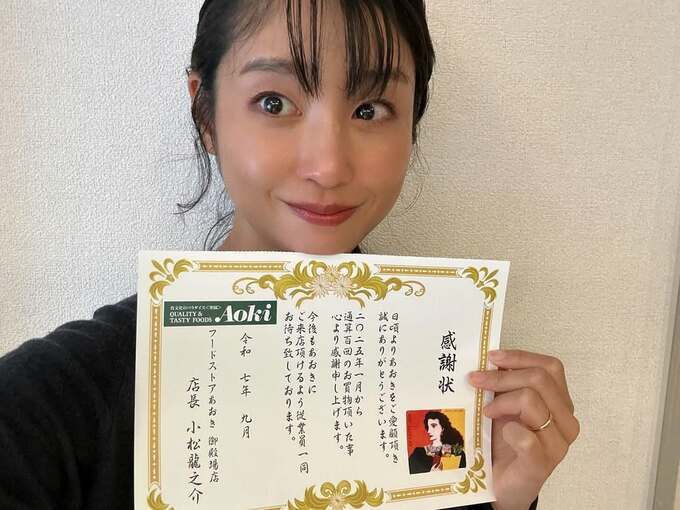 感謝状
日頃よりあおきをご愛顧頂き
誠にありがとうございます。
二〇二五年一月から
通算百回のお買物頂いた事
心より感謝申し上げます。
今後もあおきに
ご来店頂けるよう従業員一同
お待ち致しております。
令和 七年 九月
フードストアあおき 御殿場店
店長 小松龍之介
食文化のパラダイス<楽園>
QUALITY &
TASTY FOODS
Aoki